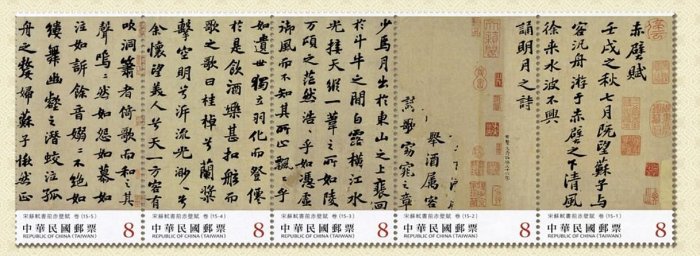 赤壁賦
壬戌之秋七月既望蘇子與
客汎舟游于赤壁之下清風
徐來水波不興
誦明月之詩
舉酒屬客
歌窈窕之章
少焉月出於東山之上裵回
於斗牛之間白露橫江水
光接天縱一葦之所如陵
萬頃之茫然浩〻乎如憑虛
御風而不知其所止飄〻乎
如遺世獨立羽化而登僊
於是飲酒樂甚扣舷而
歌之歌曰桂棹兮蘭槳
擊空明兮泝流光渺〻兮
余懷望美人兮天一方客有
吹洞簫者倚歌而和之其
聲嗚〻然如怨如慕如
泣如訴餘音嫋〻不絕如
縷舞幽壑之潛蛟泣孤
舟之嫠婦蘇子愀然正
宋蘇軾書前赤壁賦 卷 (15-5)
中華民國郵票 8
REPUBLIC OF CHINA (TAIWAN)
宋蘇軾書前赤壁賦 卷 (15-4)
中華民國郵票 8
REPUBLIC OF CHINA (TAIWAN)
宋蘇軾書前赤壁賦 卷 (15-3)
中華民國郵票 8
REPUBLIC OF CHINA (TAIWAN)
宋蘇軾書前赤壁賦 卷 (15-2)
中華民國郵票 8
REPUBLIC OF CHINA (TAIWAN)
宋蘇軾書前赤壁賦 卷 (15-1)
中華民國郵票 8
REPUBLIC OF CHINA (TAIWAN)